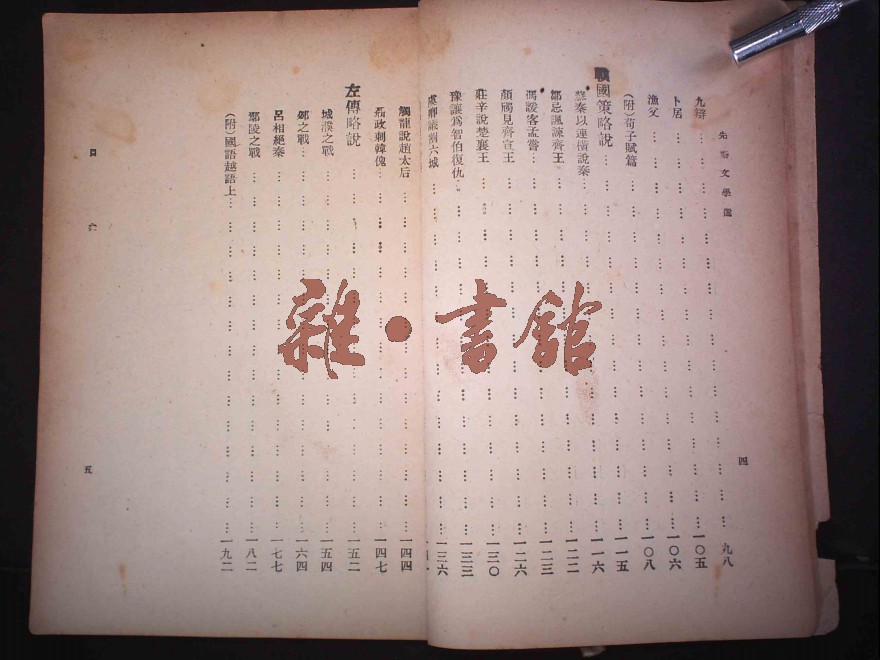 先秦文學選
四
九辯…………九八
卜居…………一〇五
漁父…………一〇六
(附)荀子賦篇…………一〇八
戰國策略說…………一一五
蘇秦以連橫說秦…………一一六
鄒忌諷諫齊王…………一二二
馮諼客孟嘗…………一二三
顏斶見齊宣王…………一二六
莊辛說楚襄王…………一三〇
豫讓爲智伯復仇…………一三三
虞卿議割六城…………一三六
觸龍說趙太后…………一四四
聶政刺韓傀…………一四七
左傳略說…………一五二
城濮之戰…………一五四
邲之戰…………一六四
呂相絕秦…………一七七
鄢陵之戰…………一八二
(附)國語越語上…………一九二
目
五
雜·書館